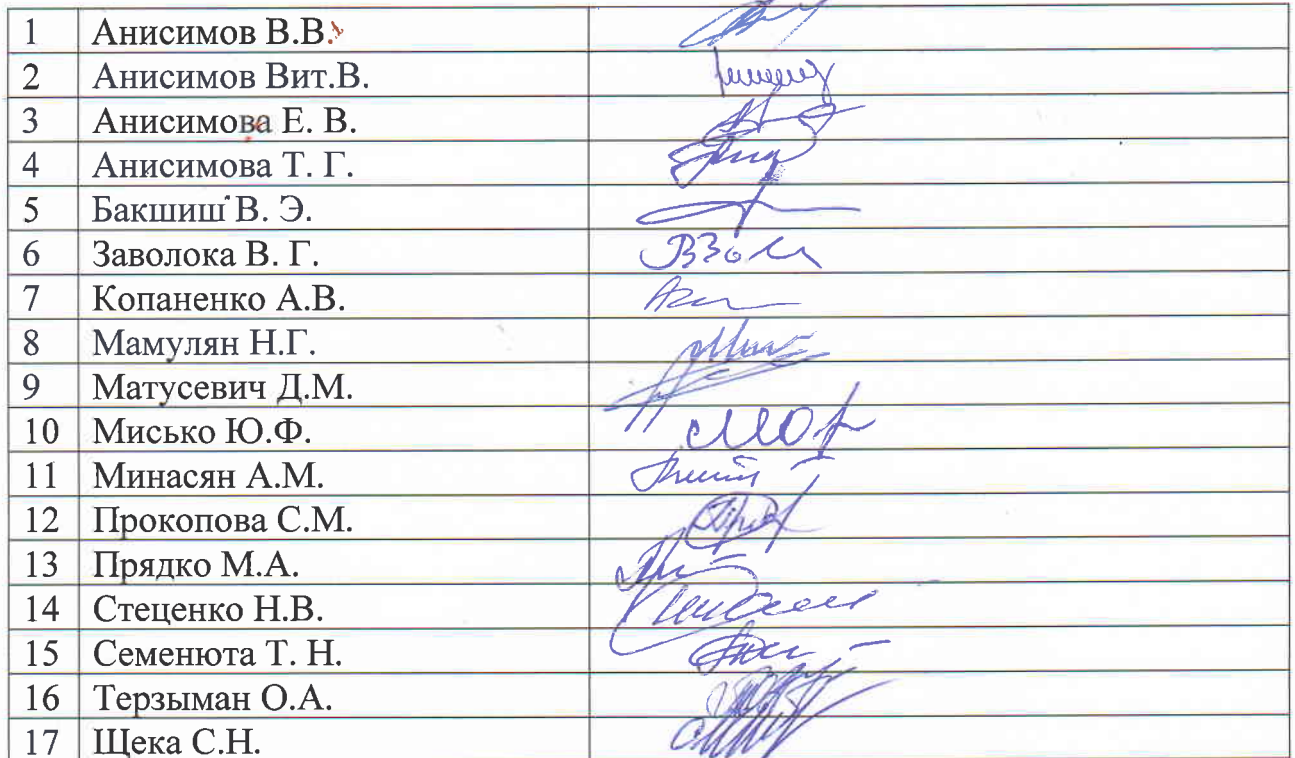 1 Анисимов В.В.
2 Анисимов Вит.В.
3 Анисимова Е. В.
4 Анисимова Т. Г.
5 Бакшиш В. Э.
6 Заволока В. Г.
7 Копаненко А.В.
8 Мамулян Н.Г.
9 Матусевич Д.М.
10 Мисько Ю.Ф.
11 Минасян А.М.
12 Прокопова С.М.
13 Прядко М.А.
14 Стеценко Н.В.
15 Семенюта Т. Н.
16 Терзыман О.А.
17 Щека С.Н.